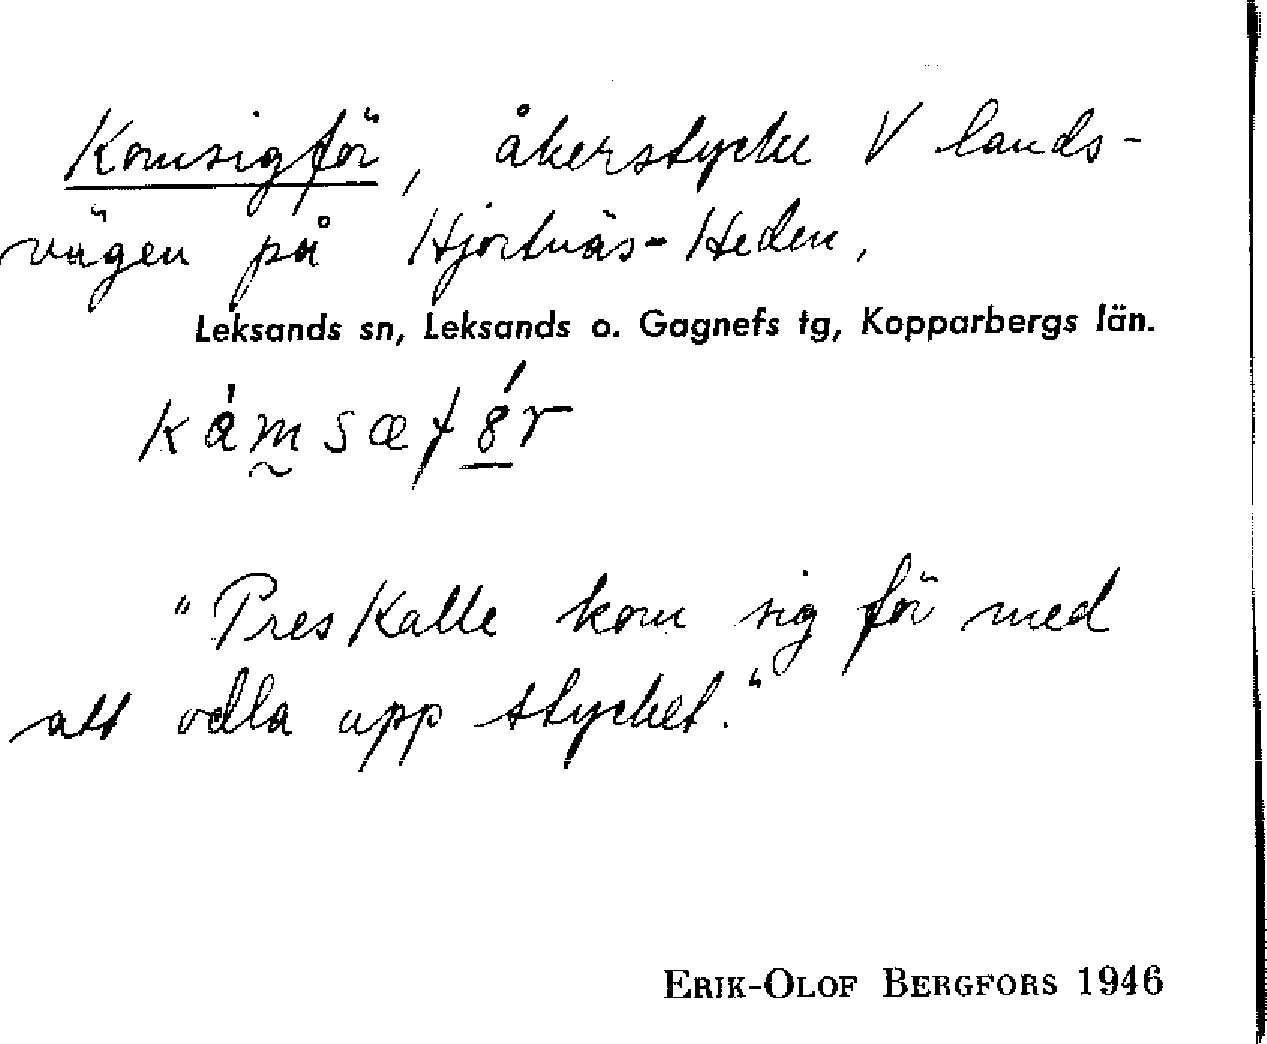 Komsigför, åkerstycke V lands-
vägen på Hjortnäs-Heden,
Leksands sn, Leksands o. Gagnefs tg, Kopparbergs län.
"Pres Kalle kom sig för med
att odla upp stycket."
ERIK-OLOF BERGFORS 1946